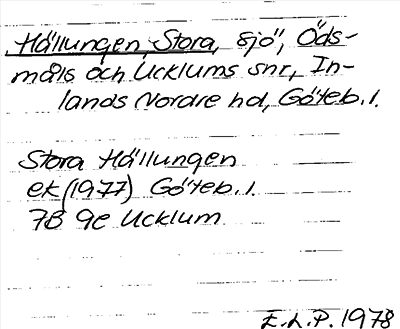 Hällungen, Stora, sjö, Öds-
måls och Ucklums snr, In-
lands Nordre hd, Göteb. l.
Stora Hällungen
ek (1977) Göteb. l.
7B 9e Ucklum
E.L.P. 1978